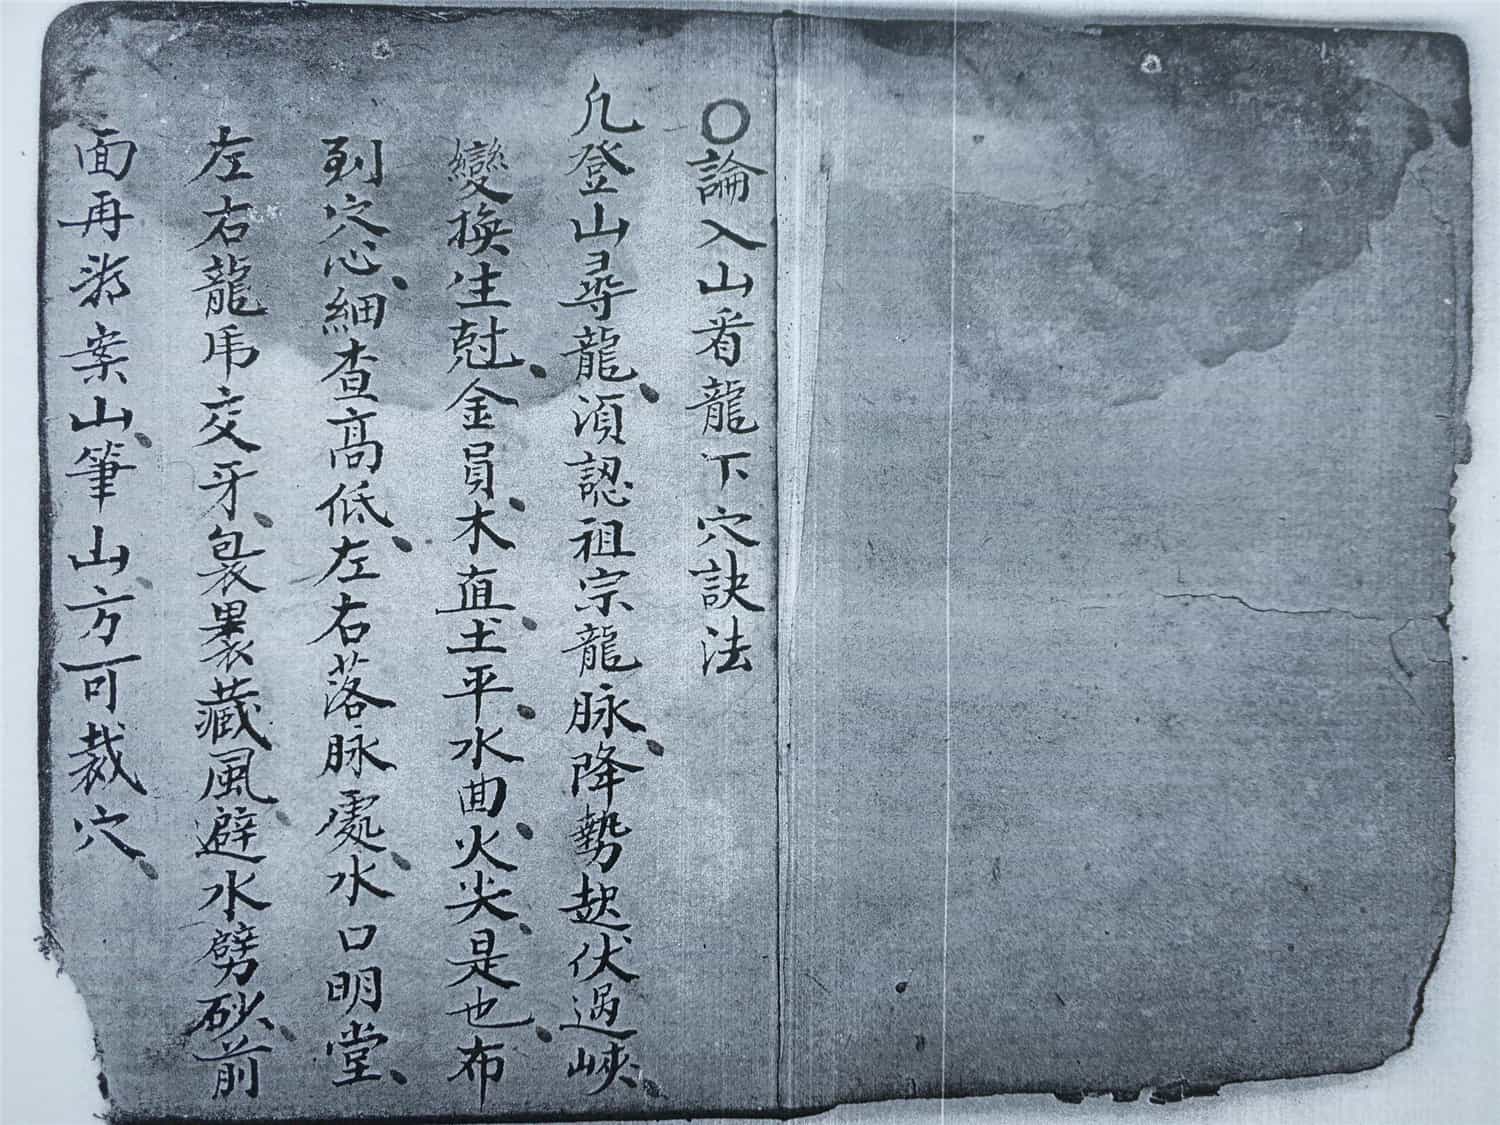 〇論入山看龍下穴訣法
凡登山尋龍、須認祖宗龍脉、降勢起伏過峽、
變換生尅、金員、木直、土平、水曲、火尖、是也、布
到穴心、細查高低、左右落脉處、水口明堂、
左右龍虎交牙、包裹藏風、避水劈砂、前
面再案山、筆山、方可裁穴、